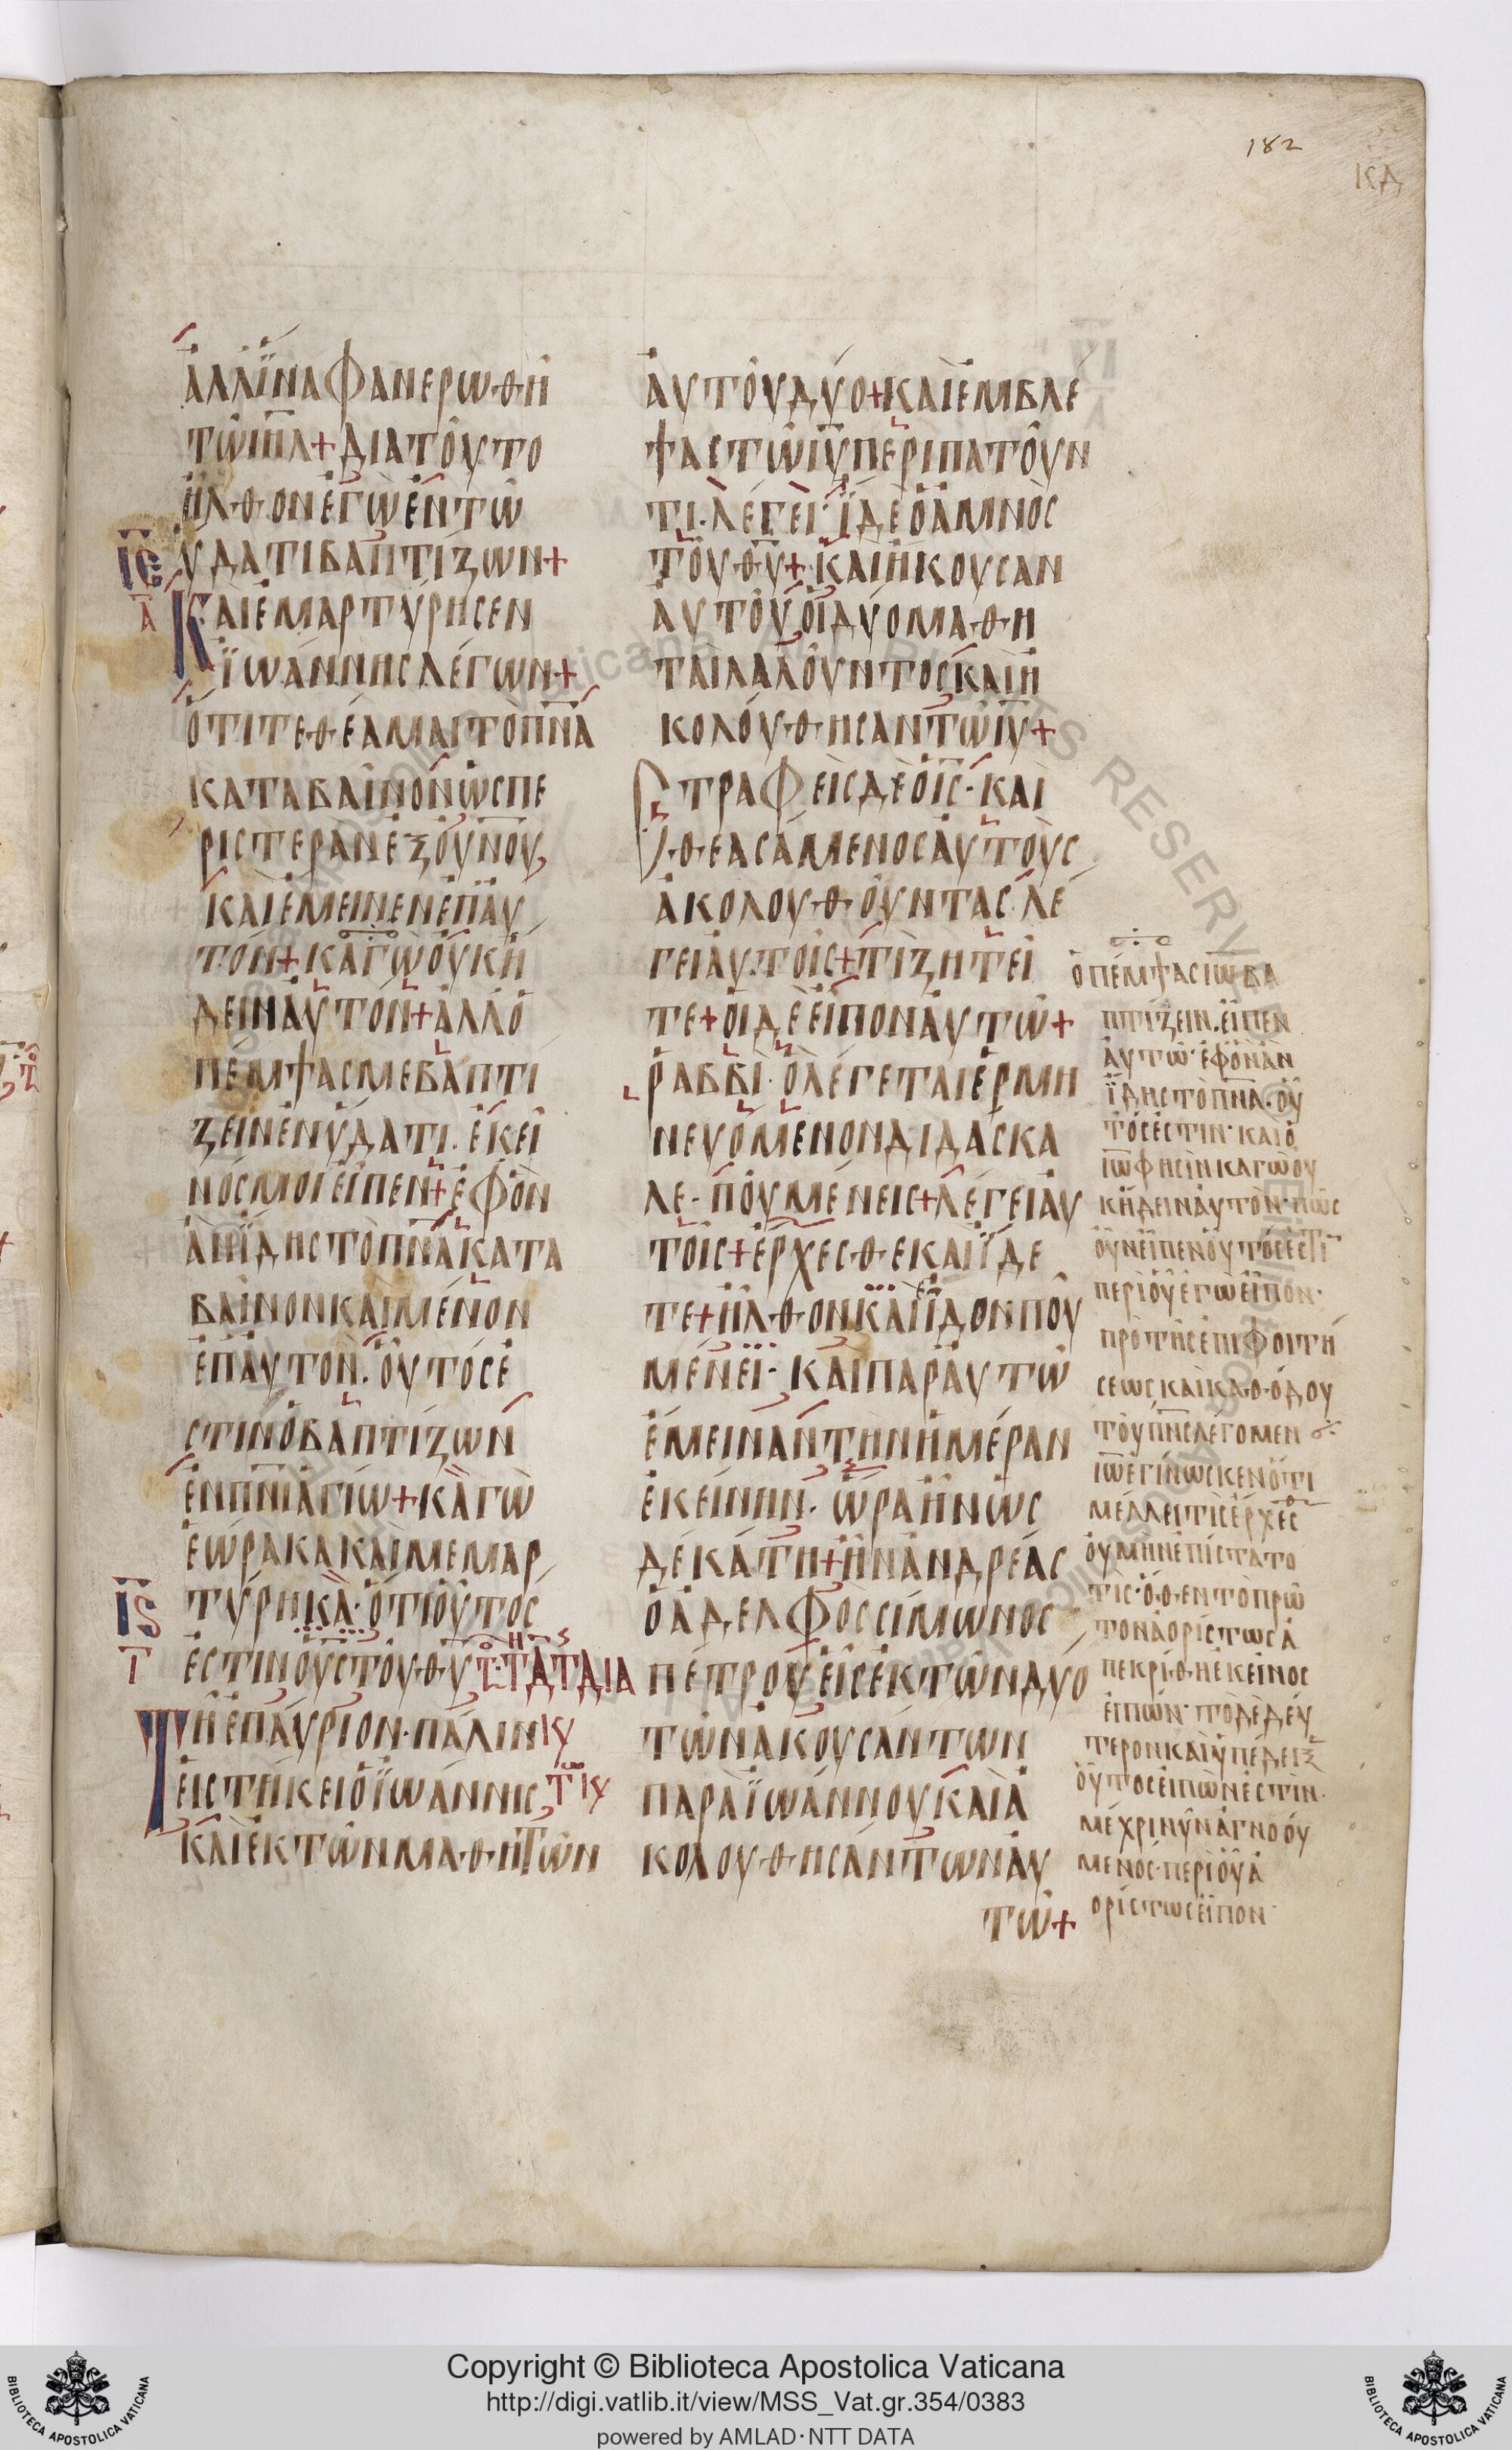 182
ΚΔ
ἀλλ' ἵνα φανερωθῆ
τῶ ιηλ + διατοῦτο
ἦλθον ἐγὼ ἐν τῶ
ὕδατι βαπτίζων +
ιε
α
Καὶ ἐμαρτύρησεν
ϊωάννης λέγων +
ὅτι τεθέαμαι τὸ πνα
καταβαῖνον ὡς πε
ριστερὰν ἐξ ουνου
καὶ ἔμεινεν ἐπ' αυ
τόν + κἀγὼ οὐκ ἤ
δειν αὐτόν + ἀλλ' ὁ
πέμψας με βαπτί
ζειν ἐν ὕδατι. ἐκεῖ
νός μοι εἶπεν + ἐφ' ὃν
ἂν ἴδης τὸ πνα κατα
βαῖνον καὶ μένον
ἐπ' αυτον. οὗτός ἐ
στιν ὁ βαπτίζων
ἐν πνι ἁγίω + κἀγὼ
ἑώρακα καὶ μεμαρ
τύρηκα· ὅτι οὗτος
ιϛ
γ
ἐστιν ὁ υς τοῦ θυ
Τῆ ἐπάυριον· πάλιν
εἱστήκει ὁ ϊωάννης
καὶ ἐκ τῶν μαθητῶν
ἀυτοῦ δύο + καὶ ἐμβλέ
ψας τῶ ιυ περιπατοῦν
τι· λέγει· ἴδε ὁ ἀμνὸς
τοῦ θυ + καὶ ἤκουσαν
ἀυτοῦ οἱ δύο μαθη
ταὶ λαλοῦντος καὶ ἠ
κολόυθησαν τῶ ιυ +
Στραφεὶς δὲ ὁ ις· καὶ
θεασάμενος ἀυτοὺς
ἀκολουθοῦντας· λέ
γει ἀυτοῖς + τί ζητεῖ
τε + οἱ δὲ εἶπον ἀυτῶ +
ῥαββὶ· ὃ λέγεται ἑρμη
νευόμενον διδάσκα
λε· ποῦ μένεις + λέγει ἀυ
τοῖς + ἔρχεσθε καὶ ἴδε
τε + ἦλθον καὶ εἶδον ποῦ
μένει· καὶ παρ' ἀυτῶ
ἔμειναν τὴν ἡμέραν
ἐκείνην· ὥρα ἦν ὡς
δεκάτη + ἦν ἀνδρέας
ὁ ἀδελφὸς σίμωνος
πέτρου εἷς ἐκ τῶν δυο
τῶν ἀκουσάντων
παρὰ ϊωάννου καὶ ἀ
κολουθησάντων ἀυ
τῶ +
ὁ πέμψας ιω βα
πτίζειν. εἶπεν
ἀυτῶ· ἐφ' ὃν ἂν
ἴδης τὸ πνα. οὗ
τός ἐστιν· καὶ ὁ
ιω φησὶν κἀγὼ οὐ
κ ἤδειν ἀυτὸν· πῶς
οὖν εἶπεν οὗτός ἐστι
περὶ οὗ ἐγὼ εἶπον·
πρὸ τῆς ἐπιφοιτή
σεως καὶ καθόδου
τοῦ πνς λέγομεν
ιω ἐγίνωσκεν ὅτι
μέλλει τὶς ἔρχεσ
ου μὴν ἐπίστατο
τίς· ὅθεν τὸ πρῶ
τον ἀορίστως ἀ
πεκρίθη ἐκεῖνος
εἰπών· τὸ δὲ δεύ
τερον καὶ ὑπέδειξ
οὗτος εἰπὼν ἐστὶν·
μέχρι νῦν ἀγνοού
μενος· περὶ οὗ ἀ
ορίστως εἶπον·
Copyright © Biblioteca Apostolica Vaticana
http://digi.vatlib.it/view/MSS_Vat.gr.354/0383
powered by AMLAD·NTT DATA
BIBLIOTECA APOSTOLICA VATICANA
BIBLIOTECA APOSTOLICA VATICANA